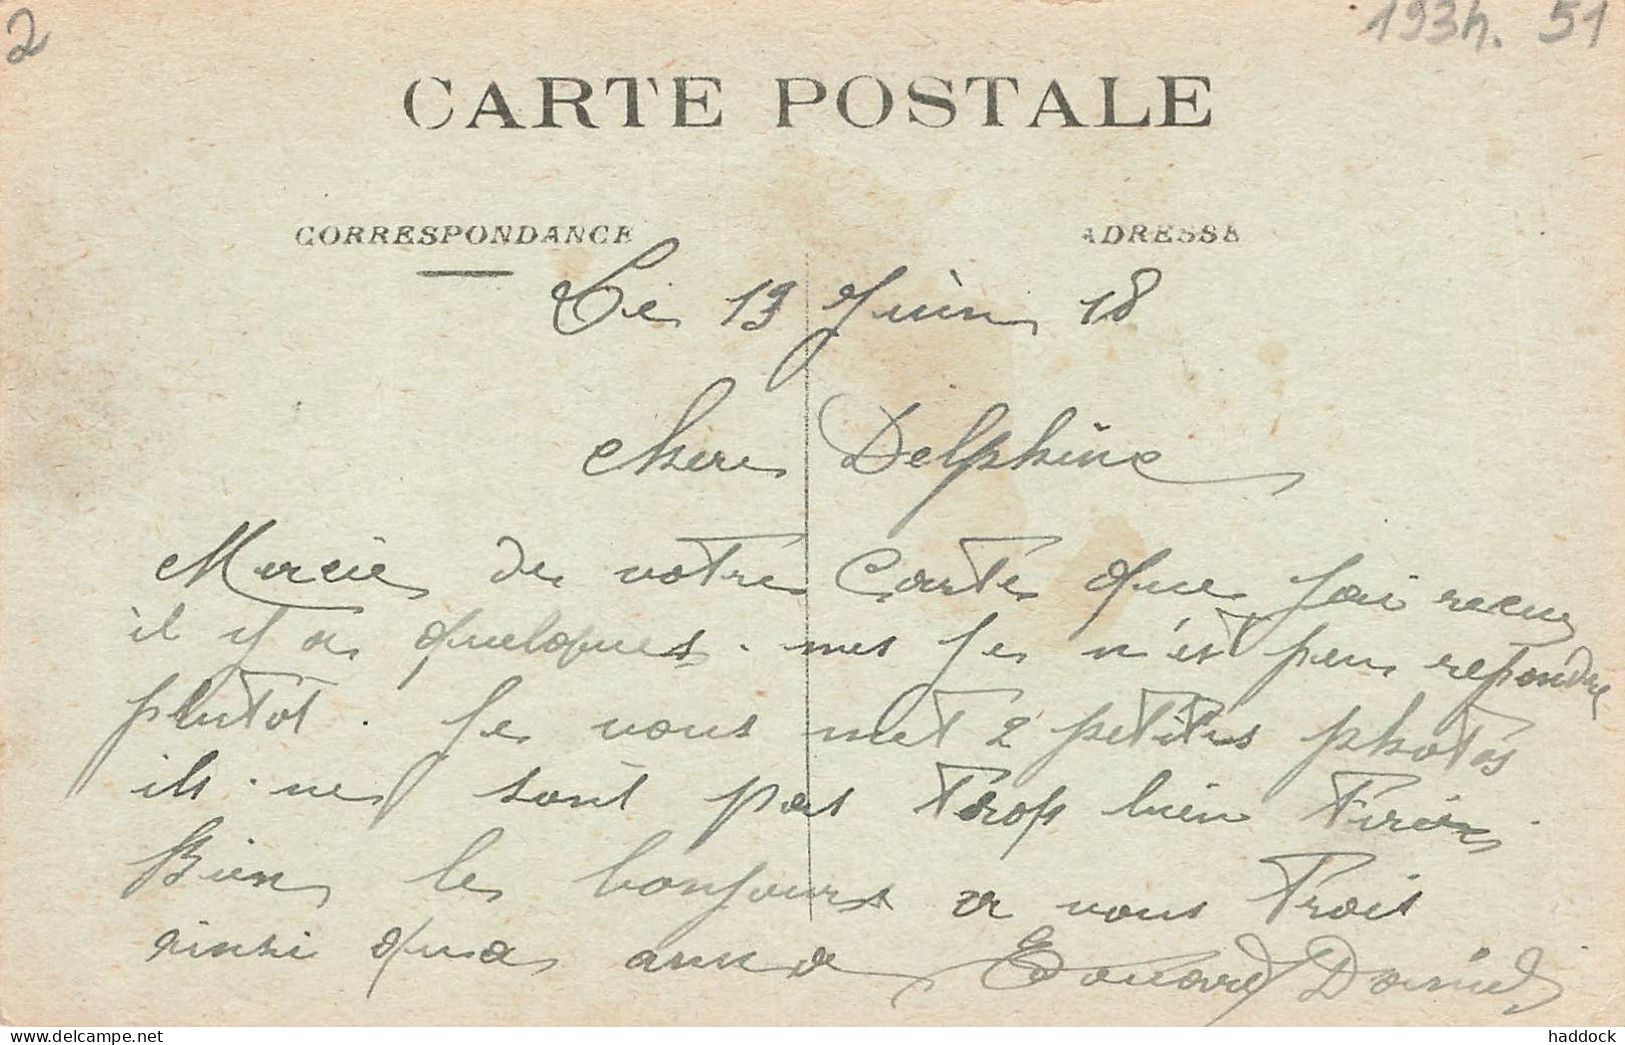 2
1934. 51
CARTE POSTALE
CORRESPONDANCE
ADRESSE
Le 13 Juin 18
Chere Delphine
Mercie de votre Carte que jai recue
il y a quelques. mes je n'est peu repondre
plutot. Je vous met 2 petites photos
ils. ne sont pas trop bien tirér
Bien le bonjours a vous trois
ainsi qua anna Edouard Daniel
haddock